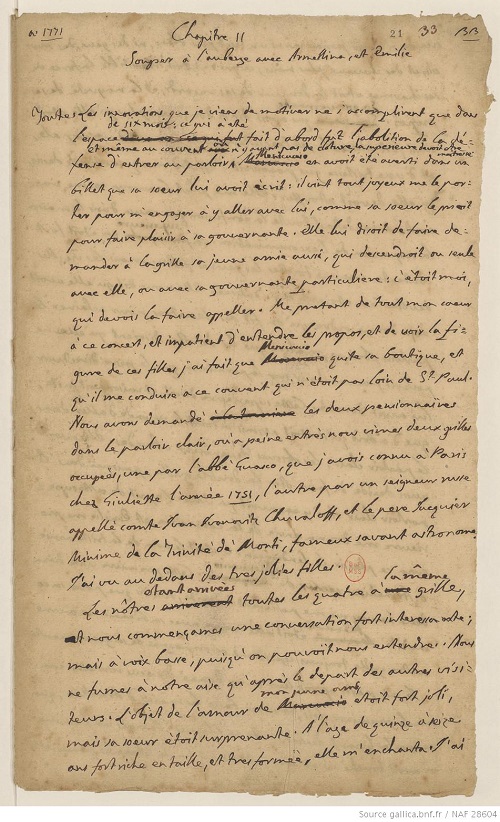 a: 1771
21 33 313
Chapitre II
Souper à l'auberge avec Armelline, et Emilie
Toutes Les innovations que je viens de motiver ne s'accomplirent que dans
de six mois: ce qui a été
l'espace fait d'abord fut l'abolition de la dé-
Et même au couvent où n'y ayant pas de cloture, la superieure devoit être maitresse
fense d'entrer au parloir. Menicuccio en avoit été averti dans un
billet que sa soeur lui avoit écrit: il vint tout joyeux me le por-
ter pour m'engager à y aller avec lui, comme sa soeur le prioit
pour faire plaisir à sa gouvernante. Elle lui disoit de faire de-
mander à la grille sa jeune amie aussi, qui descendroit ou seule
avec elle, ou avec sa gouvernante particuliere: c'étoit moi,
qui devois la faire appeller. Me pretant de tout mon coeur
à ce concert, et impatient d'entendre les propos, et de voir la fi-
gure de ces filles j'ai fait que Menicuccio quite sa boutique, et
qu'il me conduise a ce couvent qui n'étoit pas loin de S.t Paul.
Nous avons demandé les deux pensionnaires
dans le parloir clair, où à peine entrés nous vimes deux grilles
occupées, une par l'abbé Guasco, que j'avois connu à Paris
chez Giuliette l'année 1751, l'autre par un seigneur russe
appellé comte Ivan Ivanovitz Chuvaloff, et le pere Jacquier
Minime de la Trinité de Monti, fameux savant astronome.
J'ai vu au dedans des tres jolies filles.
étant arrivées la même
Les nôtres toutes les quatre à grille,
nous commençames une conversation fort interessante;
mais à voix basse, puisqu'on pouvoit nous entendre. Nous
ne fumes à notre aise qu'après le depart des autres visi-
teurs. L'objet de l'amour de mon jeune ami étoit fort joli,
mais sa soeur étoit surprenante. A l'age de quinze à seize
ans fort riche en taille, et tres formée, elle m'enchanta. J'ai
Source gallica.bnf.fr / NAF 28604